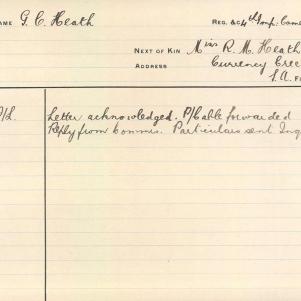 NAME G. C. Heath
REG. &c 4th Imp: Came
NEXT OF KIN Miss R. M. Heath
ADDRESS Currency Cree
S.A.
P/L. Letter acknowledged. P/Cable forwarded
Reply from Commrs. Particulars sent Inq